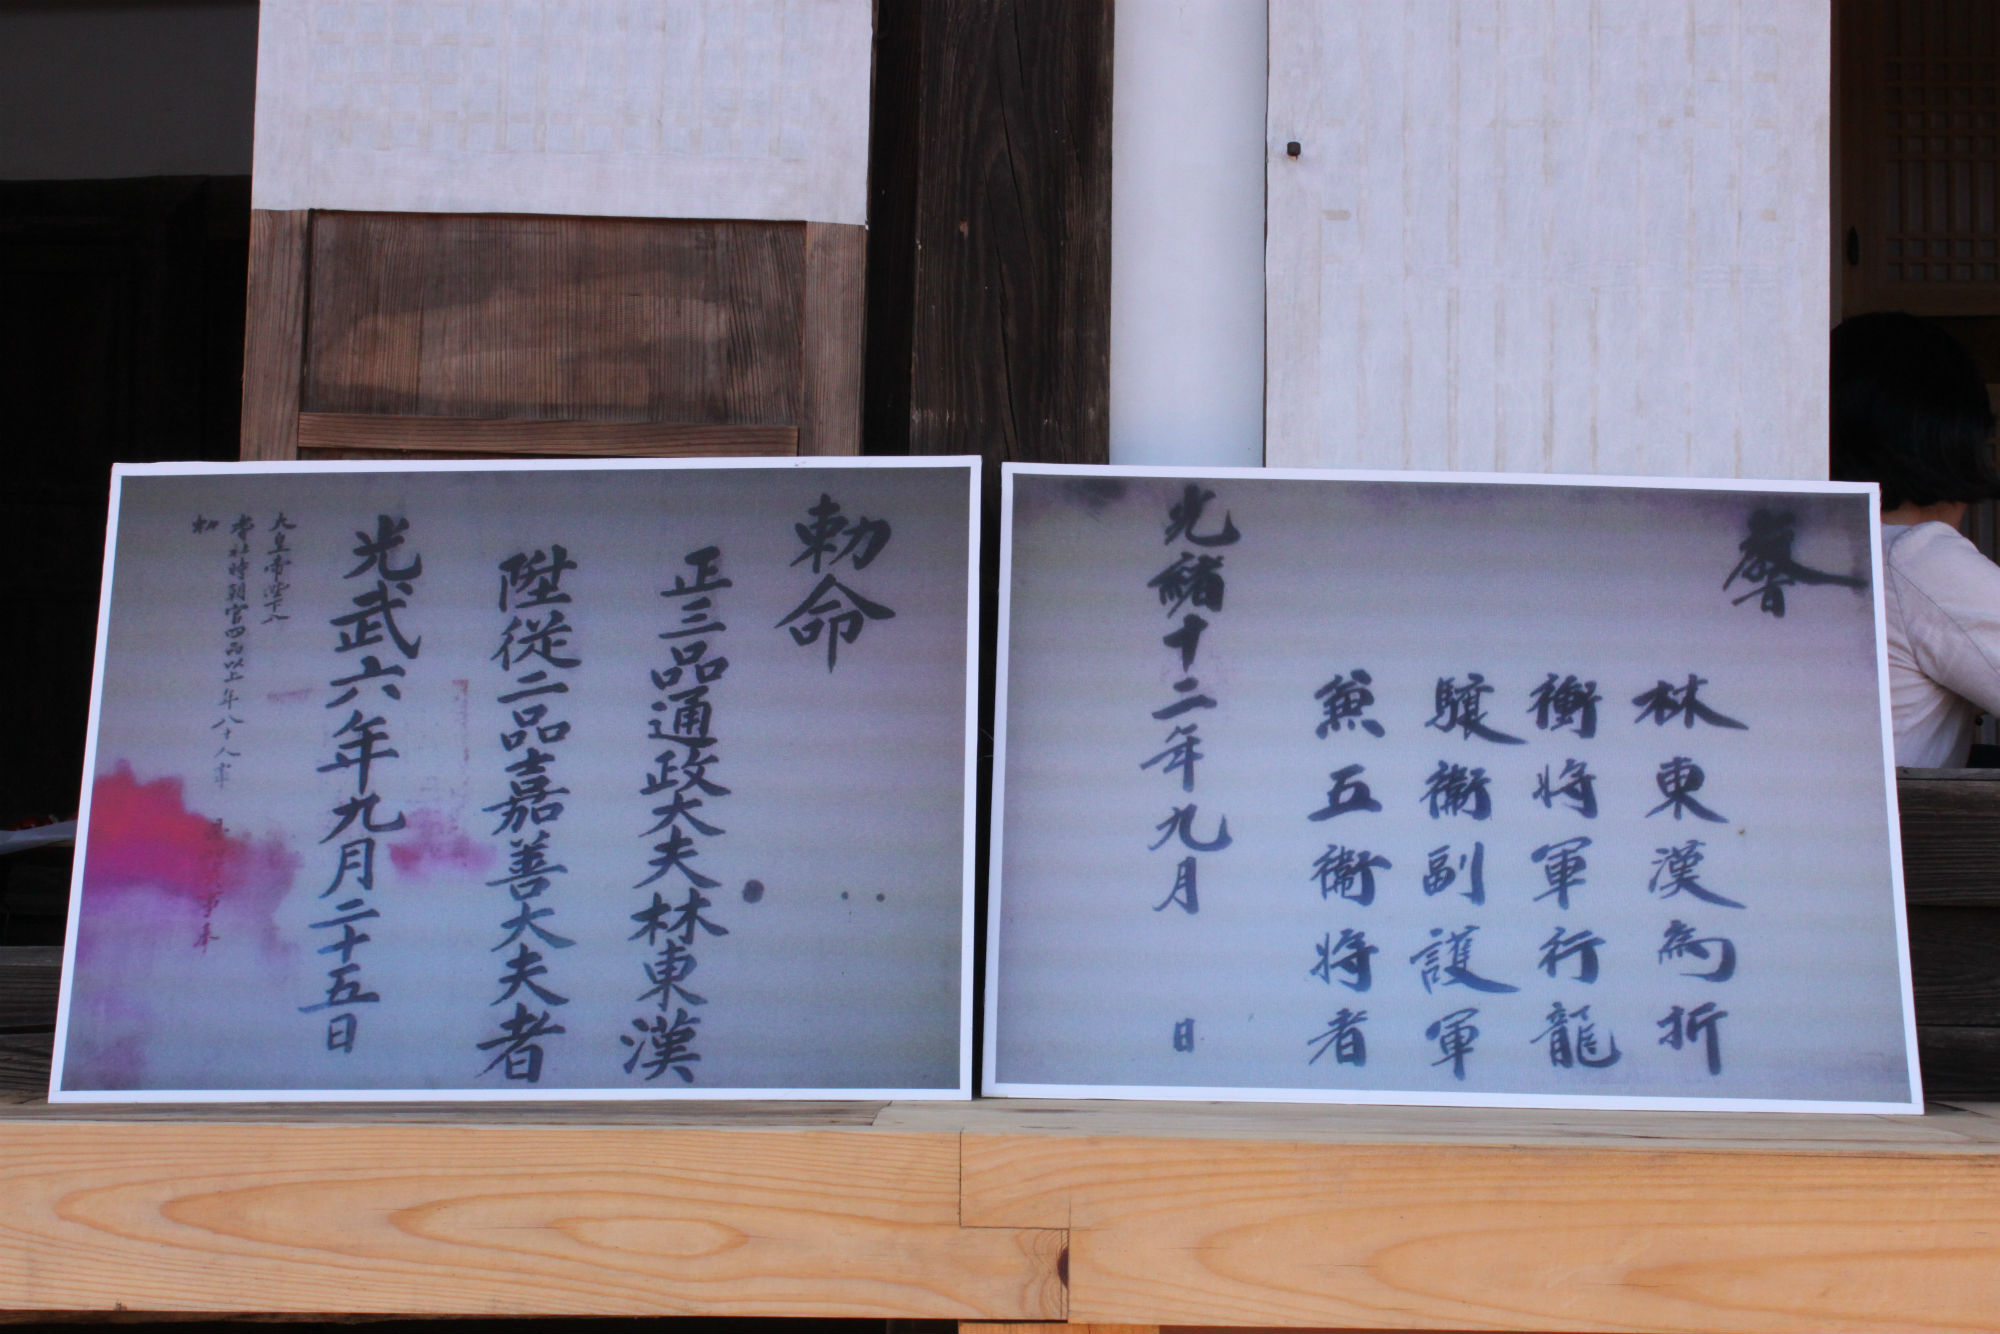 敎
林東漢為折
衝將軍行龍
驤衛副護軍
兼五衛將者
光緖十二年九月 日
勅命
正三品通政大夫林東漢
陞從二品嘉善大夫者
光武六年九月二十五日
大皇帝陛下入
耆社時朝官四品以上年八十人事
勅